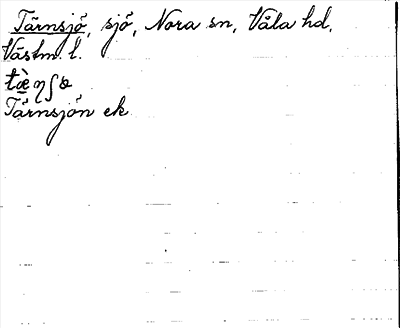 Tärnsjö, sjö, Nora sn, Våla hd,
Västm. l.
Tärnsjön ek